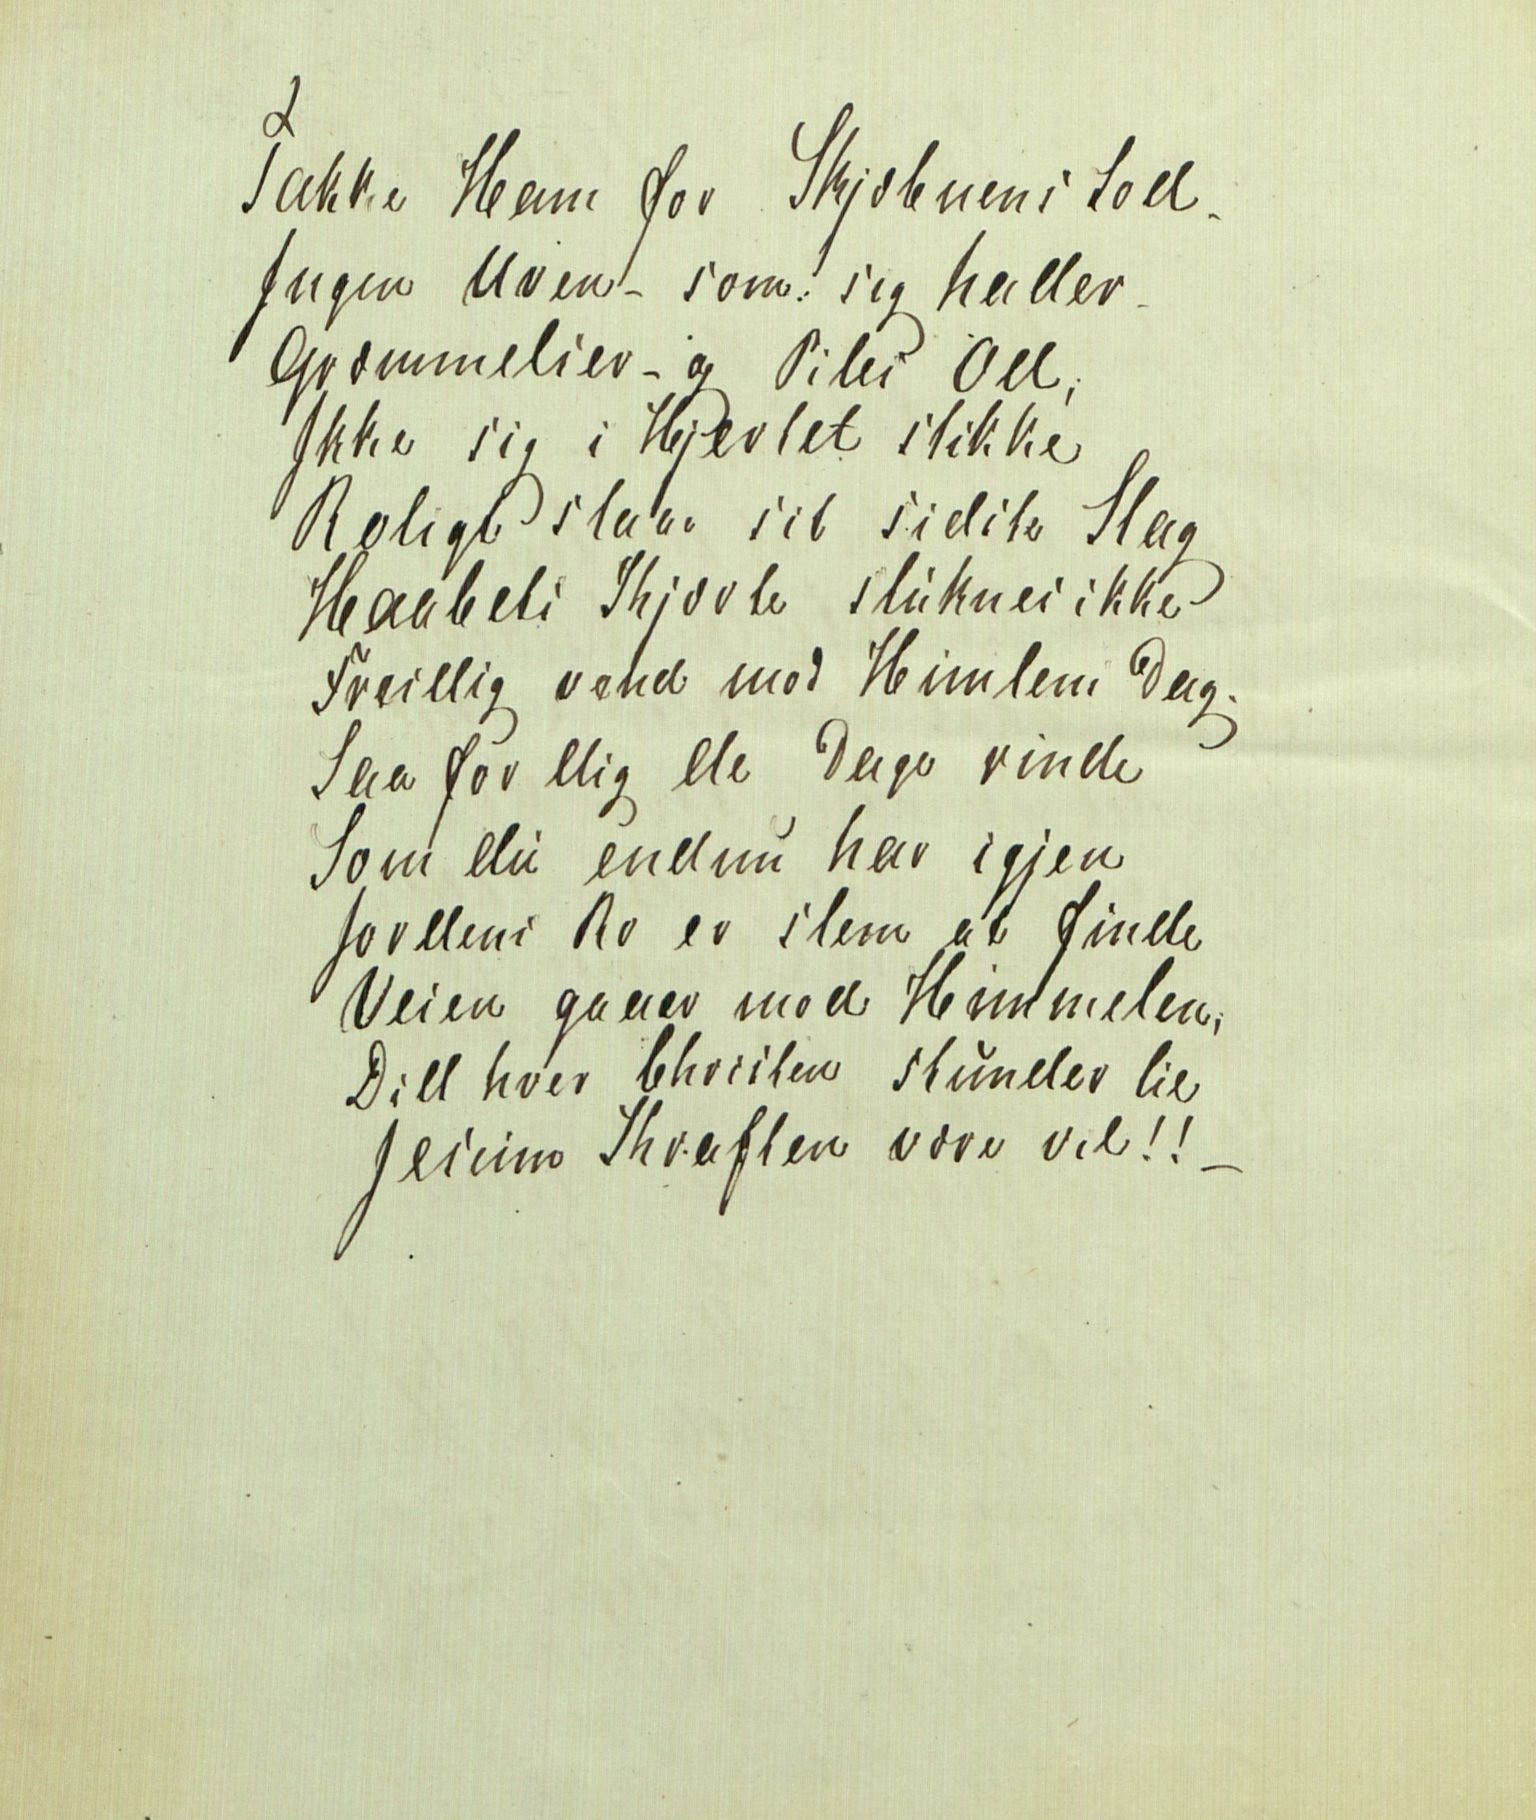 2
Takke Ham for Skjæbnens Lod -
Ingen Uven - som sig kalder -
Græmmelser - og Piles Od,
Ikke sig i Hjertet stikke
Roligt slaar sit sidste Slag
Haabets Skjorte sluknes ikke
Freidig vend mod Himlens Dag.
Saa for dig de Dage rinde
Som du endnu har igjen
Jordens Ro er slem at finde
Veien gaaer mod Himmelen,
Did hver Christen stunder til
Jesum Kraften være vil!! -